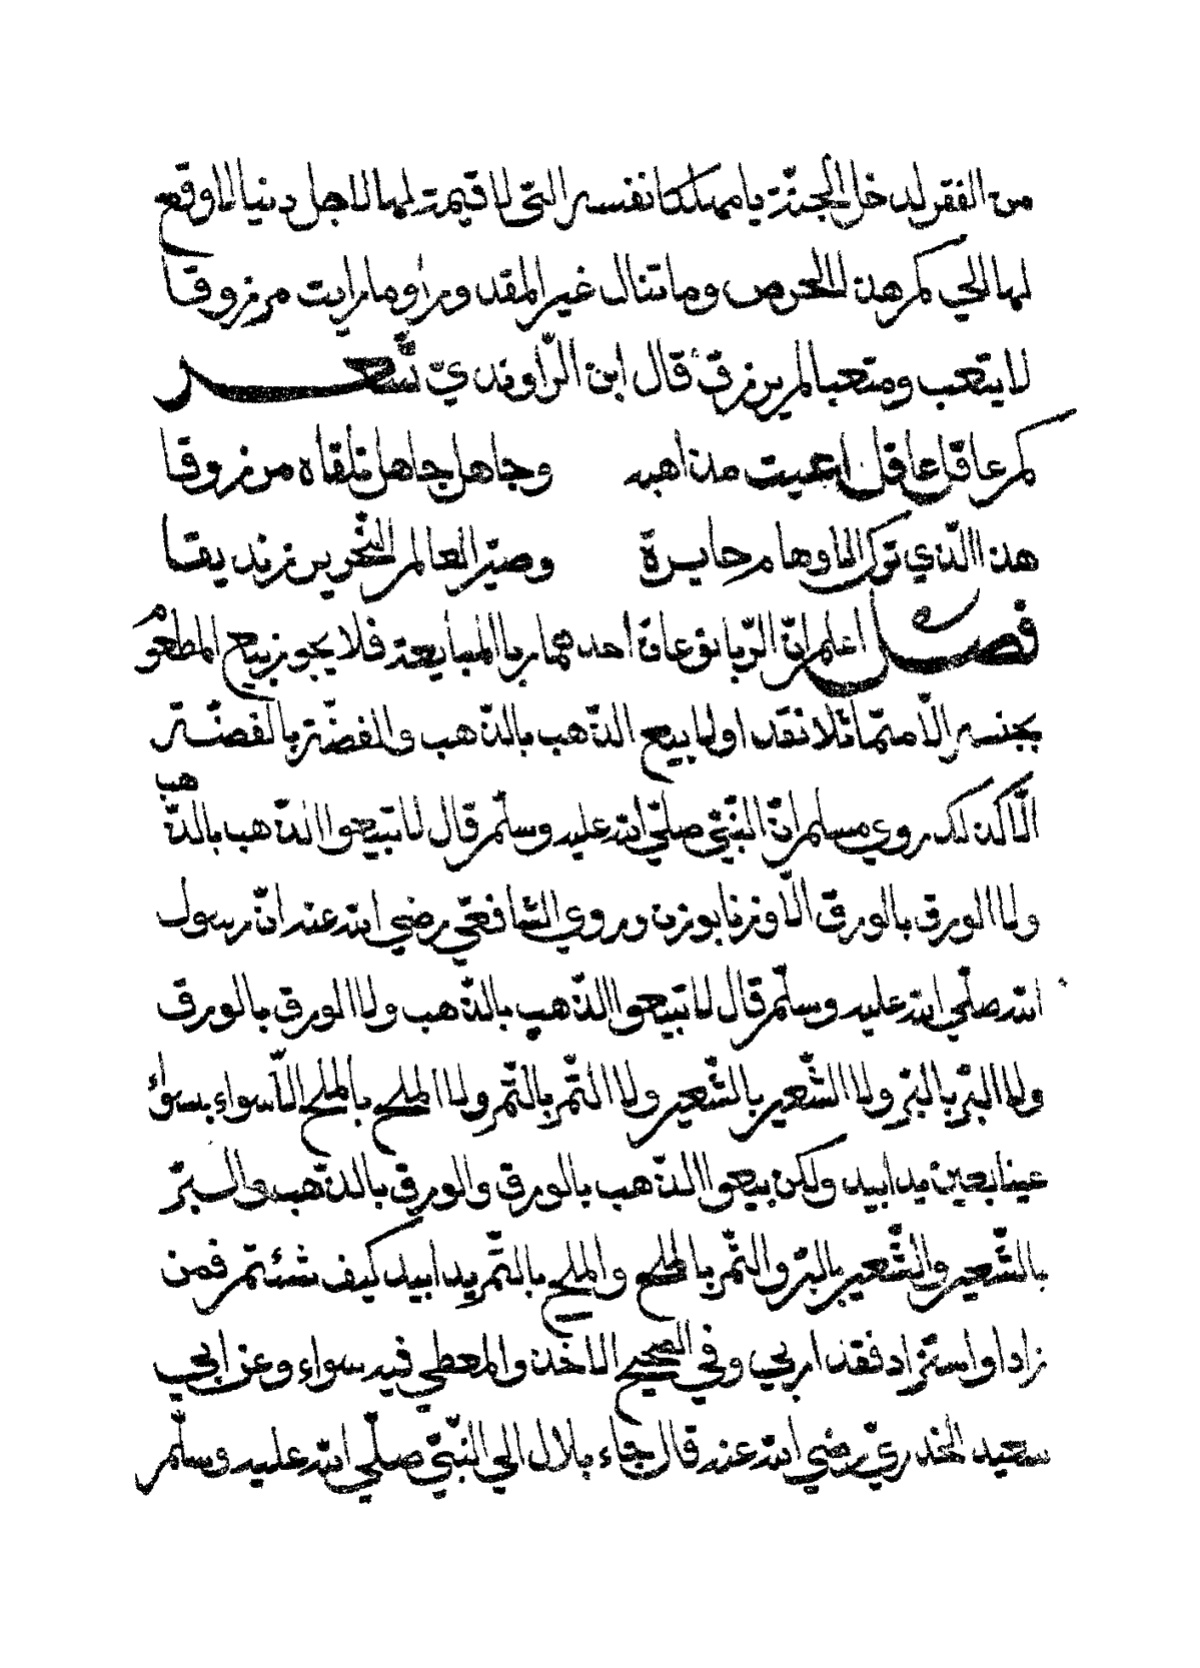 من الفقر لدخل الجنّة يا مهلكا نفسه التي لا قيمة لها لاجل دنيا لا وقع
لها الي كم هذا الحرص وما تنال غير المقدور او ما رايت مرزوقا
لا يتعب ومتعبا لم يرزق قال ابن الراوندي شعر
كم عاقل عاقل اعيت مذاهبه وجاهل جاهل تلقاه مرزوقا
هذا الذي ترك الاوهام حايرة وصيّر العالم النّحرير زنديقا
فصل اعلم انّ الرّبا نوعان احدهما ربا المبايعة فلا يجوز بيع المطعوم
بجنسه الّا متماثلا نقدا ولا بيع الذّهب بالذّهب والفضّة بالفضّة
الّا كذلك روي مسلم انّ النبيّ صلّي الله عليه وسلّم قال لا تبيعوا الذّهب بالذّهب
ولا الورق بالورق الّا وزنا بوزن وروي الشافعّي رضي الله عنه انّ رسول
الله صلّي الله عليه وسلّم قال لا تبيعوا الذّهب بالذّهب ولا الورق بالورق
ولا البّر بالبّر ولا الشّعير بالشّعير ولا التّمر بالتّمر ولا الملح بالملح الّا سواء بسواء
عينا بعين يدا بيد ولكن بيعوا الذّهب بالورق والورق بالذّهب والبّر
بالشّعير والشّعير بالبرّ والتّمر بالملح والملح بالتّمر يدا بيد كيف شئتم فمن
زاد او استزاد فقد اربي وفي الصحيح الاخذ والمعطي فيه سواء وعن ابي
سعيد الخدريّ رضي الله عنه قال جاء بلال الي النبّي صلّي الله عليه وسلّم